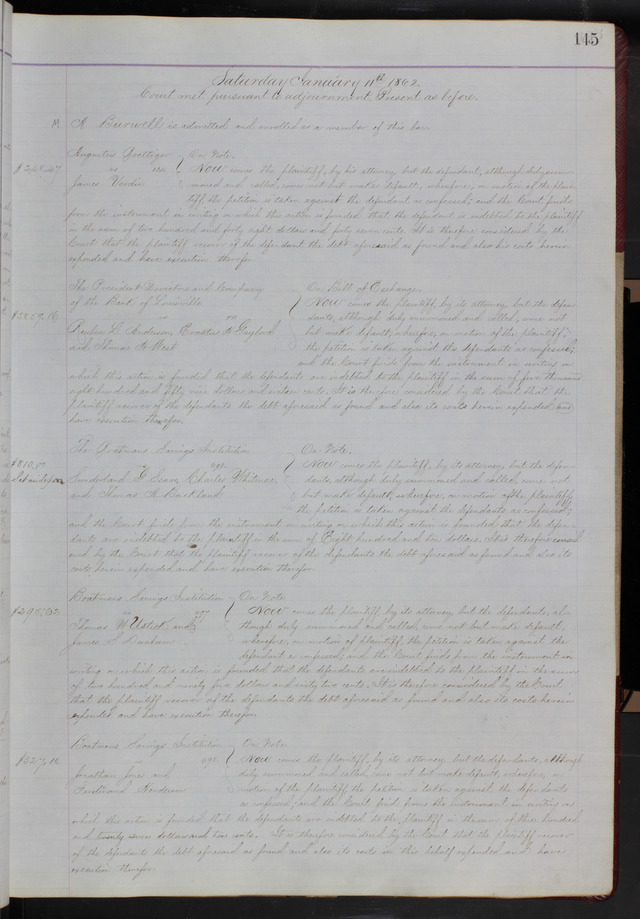 145
Saturday January 11th 1862.
Court met pursuant to adjournment, Present as before.
M Burwell is admitted and enrolled as a member of this bar.
Augustus On Note.
vs Now comes the plaintiff, by his attorney but the defendant, although duly sum-
James moned and called, comes not but makes default, wherefore, on motion of the plain-
tiff, the petition is taken against the defendant as confessed; and the Court finds
from the instrument in writing on which this action is founded that the defendant is indebted to the plaintiff
in the sum of two hundred and forty eight dollars and forty seven cents. It is therefore considered by the
Court that the plaintiff recover of the defendant the debt aforesaid as found and also his costs herein
expended and have execution therefor.
The President Directors and Company On Bill of Exchange.
of the Bank of Louisville Now comes the plaintiff, by its attorney but the defen-
$5859.16 vs dants, although duly summoned and called, come not
Reuben L. Anderson, Erastus Gaylord but make default; wherefore, on motion of the plaintiff,
and Thomas H. West the petition is taken against the defendants as confessed;
and the Court finds from the instrument in writing on
which this action is founded, that the defendants are indebted to the plaintiff in the sum of five thousand
eight hundred and fifty nine dollars and sixteen cents. It is therefore considered by the Court that the
plaintiff recover of the defendants the debt aforesaid as found and also its costs herein expended and
have execution therefor.
The Boatmens Savings Institution On Note.
$810.00 vs Now comes the plaintiff, by its attorney, but the defen-
Sunderland G. Sears, Charles Whitmore dants, although duly summoned and called, come not
and Thomas A. Buckland but make default; wherefore, on motion of the plaintiff,
the petition is taken against the defendants as confessed;
and the Court finds from the instrument in writing on which this action is founded, that the defen-
dants are indebted to the plaintiff in the sum of Eight hundred and ten dollars. It is therefore consid-
ered by the Court that the plaintiff recover of the defendants the debt aforesaid as found and also its
costs herein expended and have execution therefor.
Boatmens Savings Institution On Note
$295.62 vs Now comes the plaintiff, by its attorney but the defendants, al-
Thomas W Ustick and though duly summoned and called, come not but make default;
James S. Dunham wherefore, on motion of plaintiff, the petition is taken against the
defendants as confessed; and the Court finds from the instrument in
writing on which this action is founded that the defendants are indebted to the plaintiff in the sum
of two hundred and ninety five dollars and sixty two cents. It is therefore considered by the Court
that the plaintiff recover of the defendants the debt aforesaid as found and also its costs herein
expended and have execution therefor.
Boatmens Savings Institution On Note
vs Now comes the plaintiff, by its attorney but the defendants, although
Jonathan Jones and duly summoned and called, come not but make default, wherefore, on
Ferdinand motion of the plaintiff the petition is taken against the defendants
as confessed; and the Court finds from the instrument in writing on
which this action is founded that the defendants are indebted to the plaintiff in the sum of three hundred
and twenty seven dollars and two cents. It is therefore considered by the Court that the plaintiff recover
of the defendants the debt aforesaid as found and also its costs in this behalf expended and have
execution therefor.